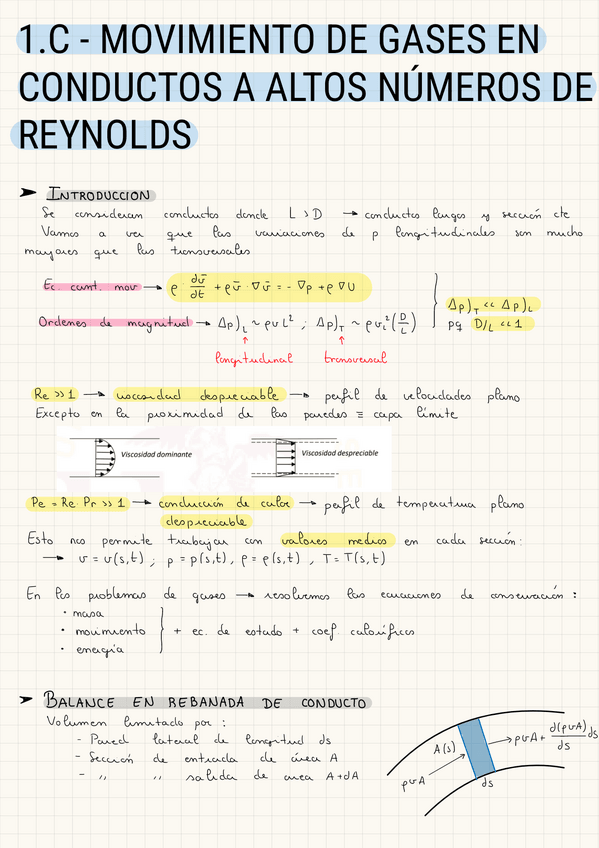 1.C - MOVIMIENTO DE GASES EN
CONDUCTOS A ALTOS NÚMEROS DE
REYNOLDS
➤ INTRODUCCION
Se consideran conductos donde L > D → conductos largos y sección cte
Vamos a ver que las variaciones de p longitudinales son mucho
mayores que las transversales
Ec. cant. mov → ρ · dv̄/dt + ρv̄ · ∇v̄ = - ∇p + ρ∇U
Ordenes de magnitud → Δp)_L ~ ρv_L² ; Δp)_T ~ ρv_L² (D/L)
Δp)_T << Δp)_L
pq D/L << 1
↑ longitudinal ↑ transversal
Re >> 1 → viscosidad despreciable → perfil de velocidades plano
Excepto en la proximidad de las paredes ≡ capa límite
Viscosidad dominante
Viscosidad despreciable
Pe = Re · Pr >> 1 → conducción de calor → perfil de temperatura plano
despreciable
Esto nos permite trabajar con valores medios en cada sección:
→ v = v(s,t) ; p = p(s,t), ρ = ρ(s,t) , T = T(s,t)
En los problemas de gases → resolvemos las ecuaciones de conservación :
· masa
· movimiento } + ec. de estado + coef. caloríficos
· energía
➤ BALANCE EN REBANADA DE CONDUCTO
Volumen limitado por :
- Pared lateral de longitud ds
- Sección de entrada de área A
- ,, ,, salida de area A+dA
A(s)
ρvA
ρvA + d(ρvA)/ds ds
ds